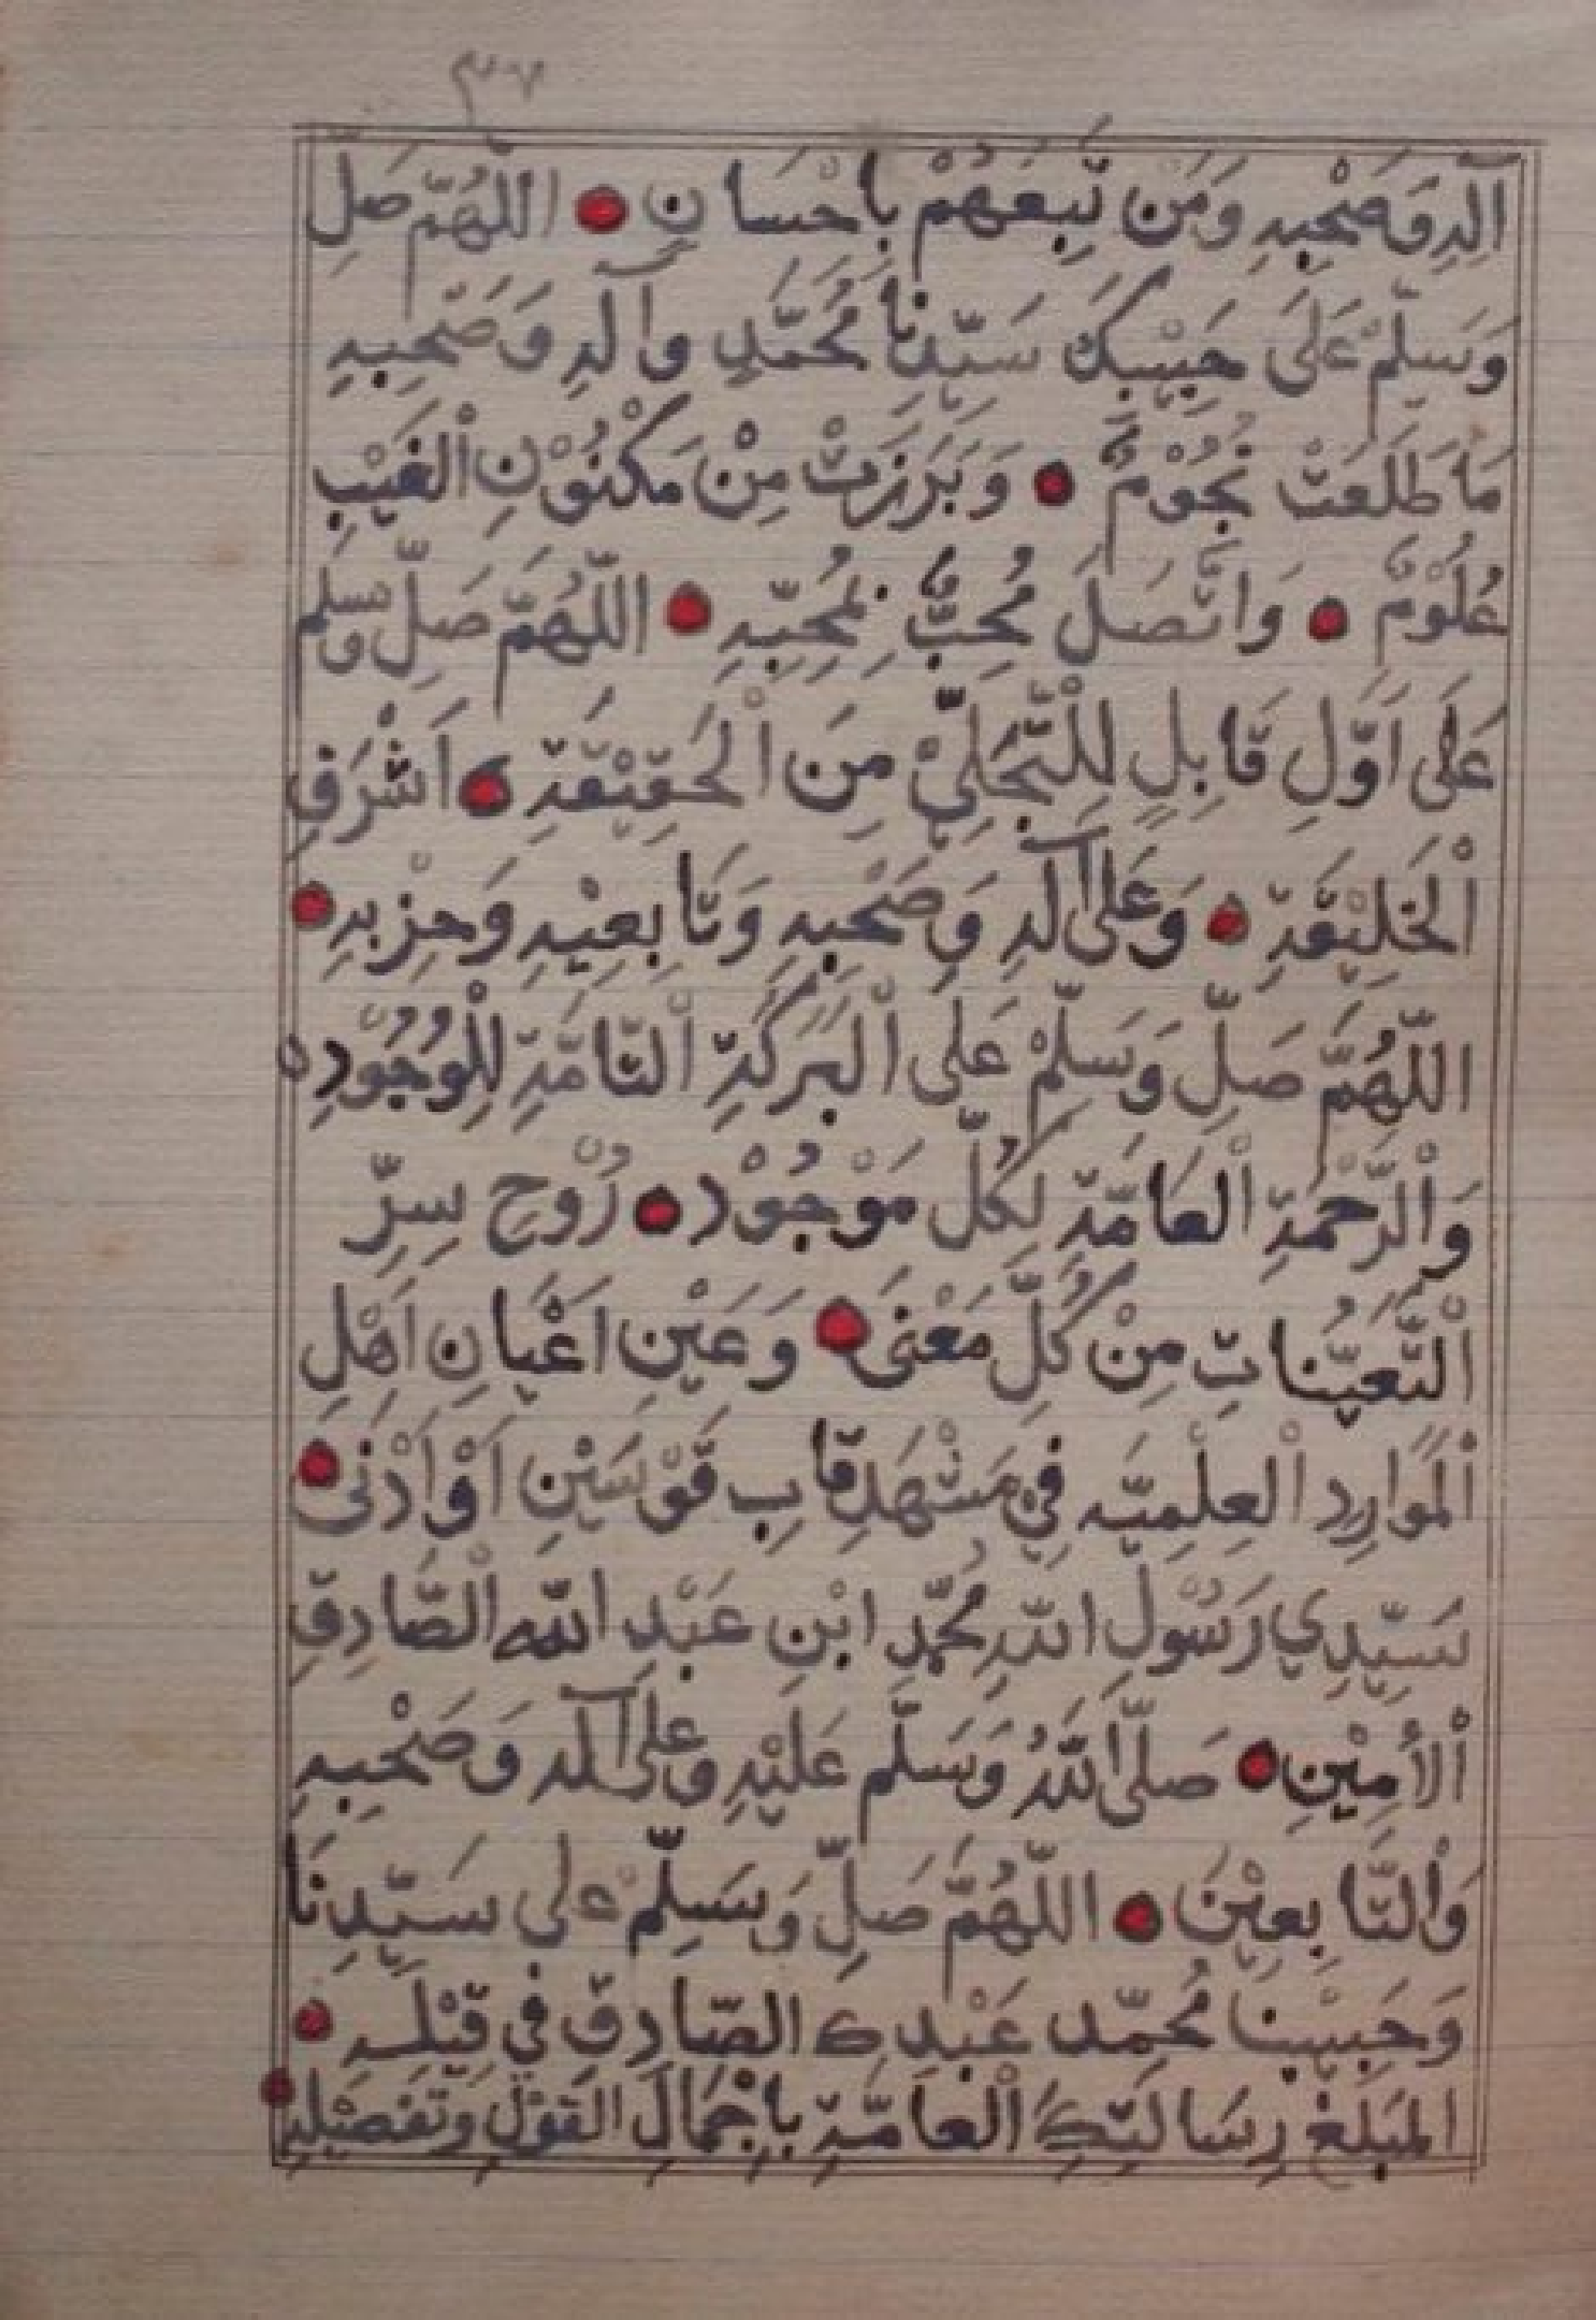 ٣٧
آلِهِ وَصَحْبِهِ وَمَن تَبِعَهُمْ بِاحْسَانٍ • اللّهُمّ صَلِّ
وَسَلِّمْ عَلَى حَبِيْبِكَ سَيِّدِنَا مُحَمَّدٍ وآلِهِ وَصَحْبِهِ
مَا طَلَعَتْ نُجُوْمٌ • وَبَرَزَتْ مِنْ مَكْنُوْنِ الْغَيْبِ
عُلُوْمٌ • وَاتَّصَلَ مُحِبٌّ لِمُحِبِّهِ • اللّهُمّ صَلِّ وسلم
عَلَى اَوَّلِ قَابِلٍ لِلْتَّجَلِيّْ مِنَ الْحَقِيْقَةِ • اَشْرَفِ
الْخَلِيْقَةِ • وَعَلَى آلِهِ وَصَحْبِهِ وَتَابِعِيْهِ وَحِزْبِهِ •
اللّهُمَّ صَلِّ وَسَلِّمْ عَلَى الْبَرَكَةِ الْتَّامَّةِ لِلْوُجُوْدِ ۝
وَالْرَّحْمَةِ الْعَامَّةِ لِكُلِّ مَوْجُوْد • رُوْحِ سِرِّ
الْتَّعَيُّنَاتِ مِنْ كُلِّ مَعْنَى • وَعَيْنِ اَعْيَانِ اَهْلِ
الْمَوَارِدِ الْعِلْمِيَّه فِي مَشْهَدِ قَابِ قَوْسَيْنِ اَوْ اَدْنَى •
سَيِّدِي رَسُوْلِ اللهِ مُحَمَّدِ ابْنِ عَبْدِ الله الْصَّادِقِ
الْأَمِيْنِ • صَلَّى اللهُ وَسَلَّم عَلَيْهِ وَعَلَى آلِه وَصَحْبِهِ
وَالْتَّابِعِيْنَ • اللّهُمّ صَلِّ وَسَلِّمْ على سَيِّدِنَا
وَحَبِيْبِنَا مُحَمَّد عَبْدِكَ الصّادِقِ فِي قِيْلِهِ •
المُبَلِّغْ رِسَالَتِكَ الْعَامَّةِ بِاِجْمَالِ القَوْلِ وَتَفْصِيْلِهِ •